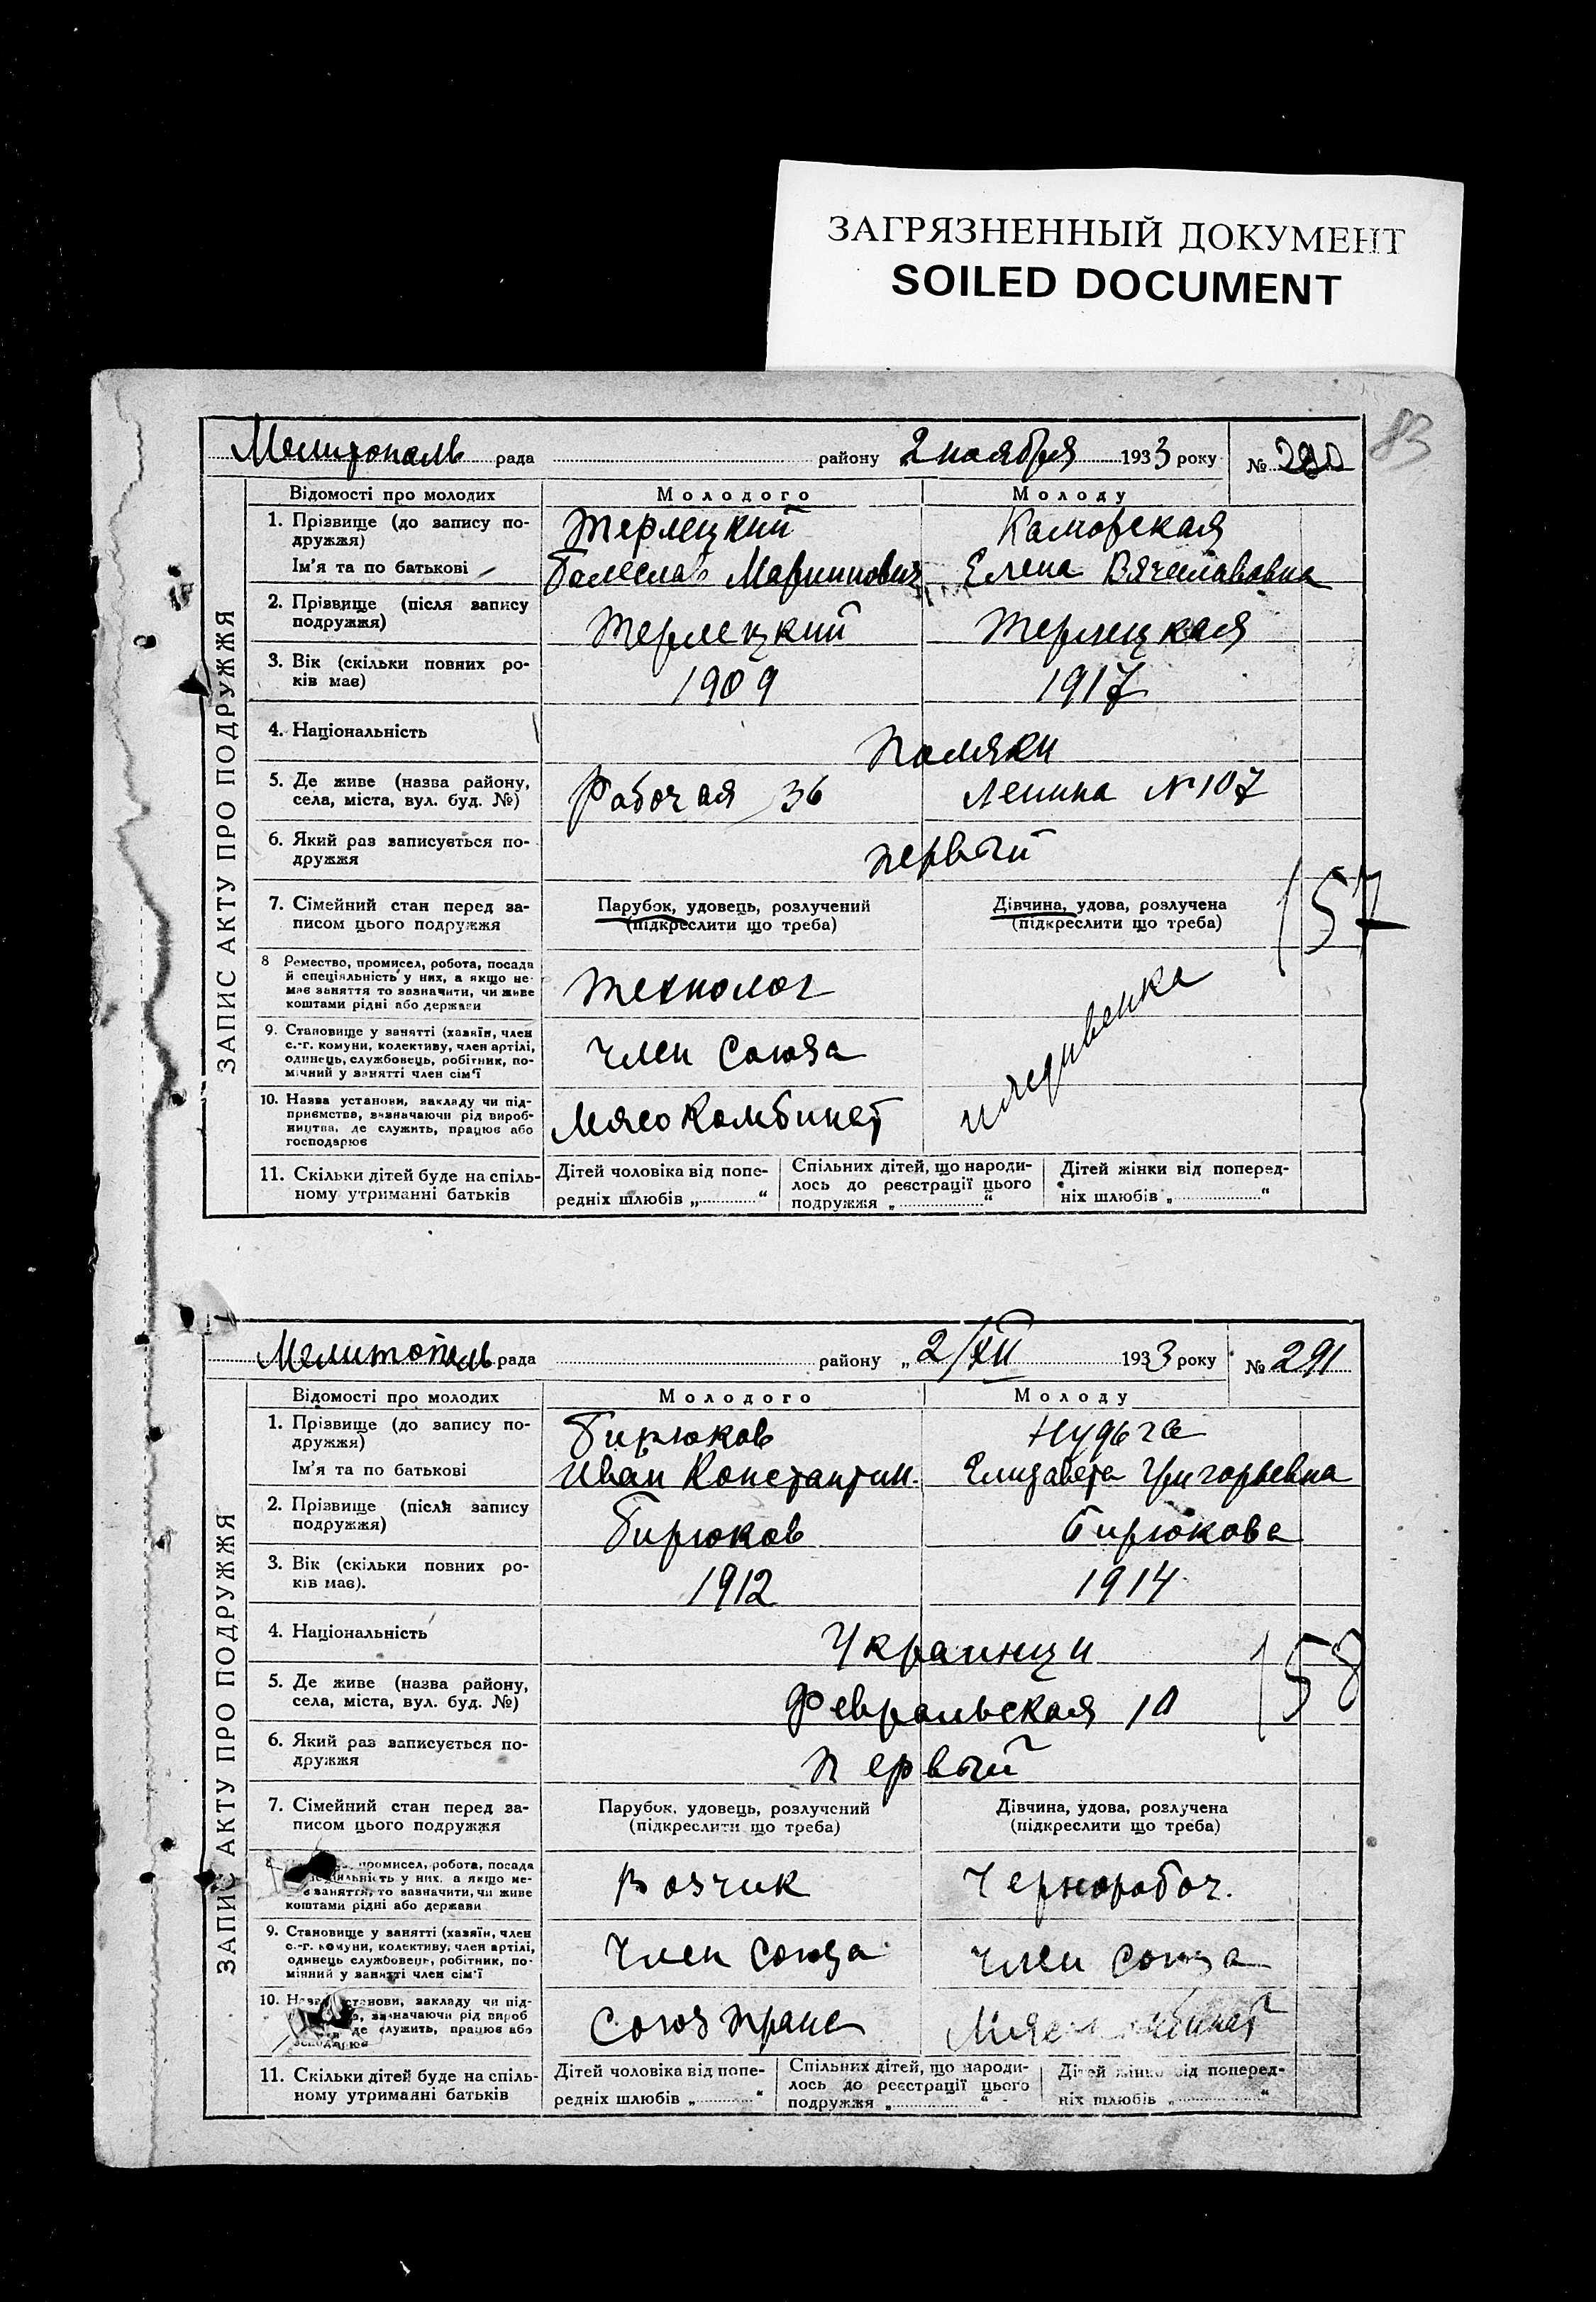 ЗАГРЯЗНЕННЫЙ ДОКУМЕНТ
SOILED DOCUMENT
83
Мелитополь рада району 2 ноября 1933 року №
ЗАПИС АКТУ ПРО ПОДРУЖЖЯ
Відомості про молодих Молодого Молоду
1. Прізвище (до запису по- Терлецкий
дружжя)
Ім'я та по батькові Болеслав Елена Вячеславовна
2. Прізвище (після запису
подружжя) Терлецкий Терлецкая
3. Вік (скільки повних ро-
ків має) 1909 1917
4. Національність Поляки
5. Де живе (назва району,
села, міста, вул. буд. №) Рабочая 36 Ленина № 107
6. Який раз записується по-
дружжя первый
157
7. Сімейний стан перед за- Парубок, удовець, розлучений Дівчина, удова, розлучена
писом цього подружжя (підкреслити що треба) (підкреслити що треба)
8 Ремество, промисел, робота, посада
й спеціяльність у них, а якщо не-
має заняття то зазначити, чи живе
коштами рідні або держави Технолог иждивенка
9. Становище у занятті (хазяїн, член
с.-г. комуни, колективу, член артілі,
одинець, службовець, робітник, по-
мічний у занятті член сім'ї Член союза
10. Назва установи, закладу чи під-
приємства, визначаючи рід вироб-
ництва, де служить, працює або
господарює Мясокомбинат
11. Скільки дітей буде на спіль- Дітей чоловіка від попе- Спільних дітей, що народи- Дітей жінки від поперед-
ному утриманні батьків редніх шлюбів „ “ лось до реєстрації цього ніх шлюбів „ “
подружжя „ “
Мелитополь рада району „2/XII 1933 року № 291
ЗАПИС АКТУ ПРО ПОДРУЖЖЯ
Відомості про молодих Молодого Молоду
1. Прізвище (до запису по- Бирюков Нудьга
дружжя)
Ім'я та по батькові Иван Константин. Елизавета Григорьевна
2. Прізвище (після запису
подружжя) Бирюков Бирюкова
3. Вік (скільки повних ро-
ків має). 1912 1914
4. Національність Украинци
158
5. Де живе (назва району,
села, міста, вул. буд. №) Февральская 10
6. Який раз записується по-
дружжя Первый
7. Сімейний стан перед за- Парубок, удовець, розлучений Дівчина, удова, розлучена
писом цього подружжя (підкреслити що треба) (підкреслити що треба)
промисел, робота, посада
у них, а якщо не-
заняття, то зазначити, чи живе
коштами рідні або держави Возчик Чернорабоч.
9. Становище у занятті (хазяїн, член
с.-г. комуни, колективу, член артілі,
одинець службовець, робітник, по-
мічний у занятті член сім'ї Член союза Член союза
10. установи, закладу чи під-
зазначаючи рід вироб
де служить, працює або
Союзтранс
11. Скільки дітей буде на спіль- Дітей чоловіка від попе- Спільних дітей, що народи- Дітей жінки від поперед-
ному утриманні батьків редніх шлюбів „ “ лось до реєстрації цього ніх шлюбів „ “
подружжя „ “